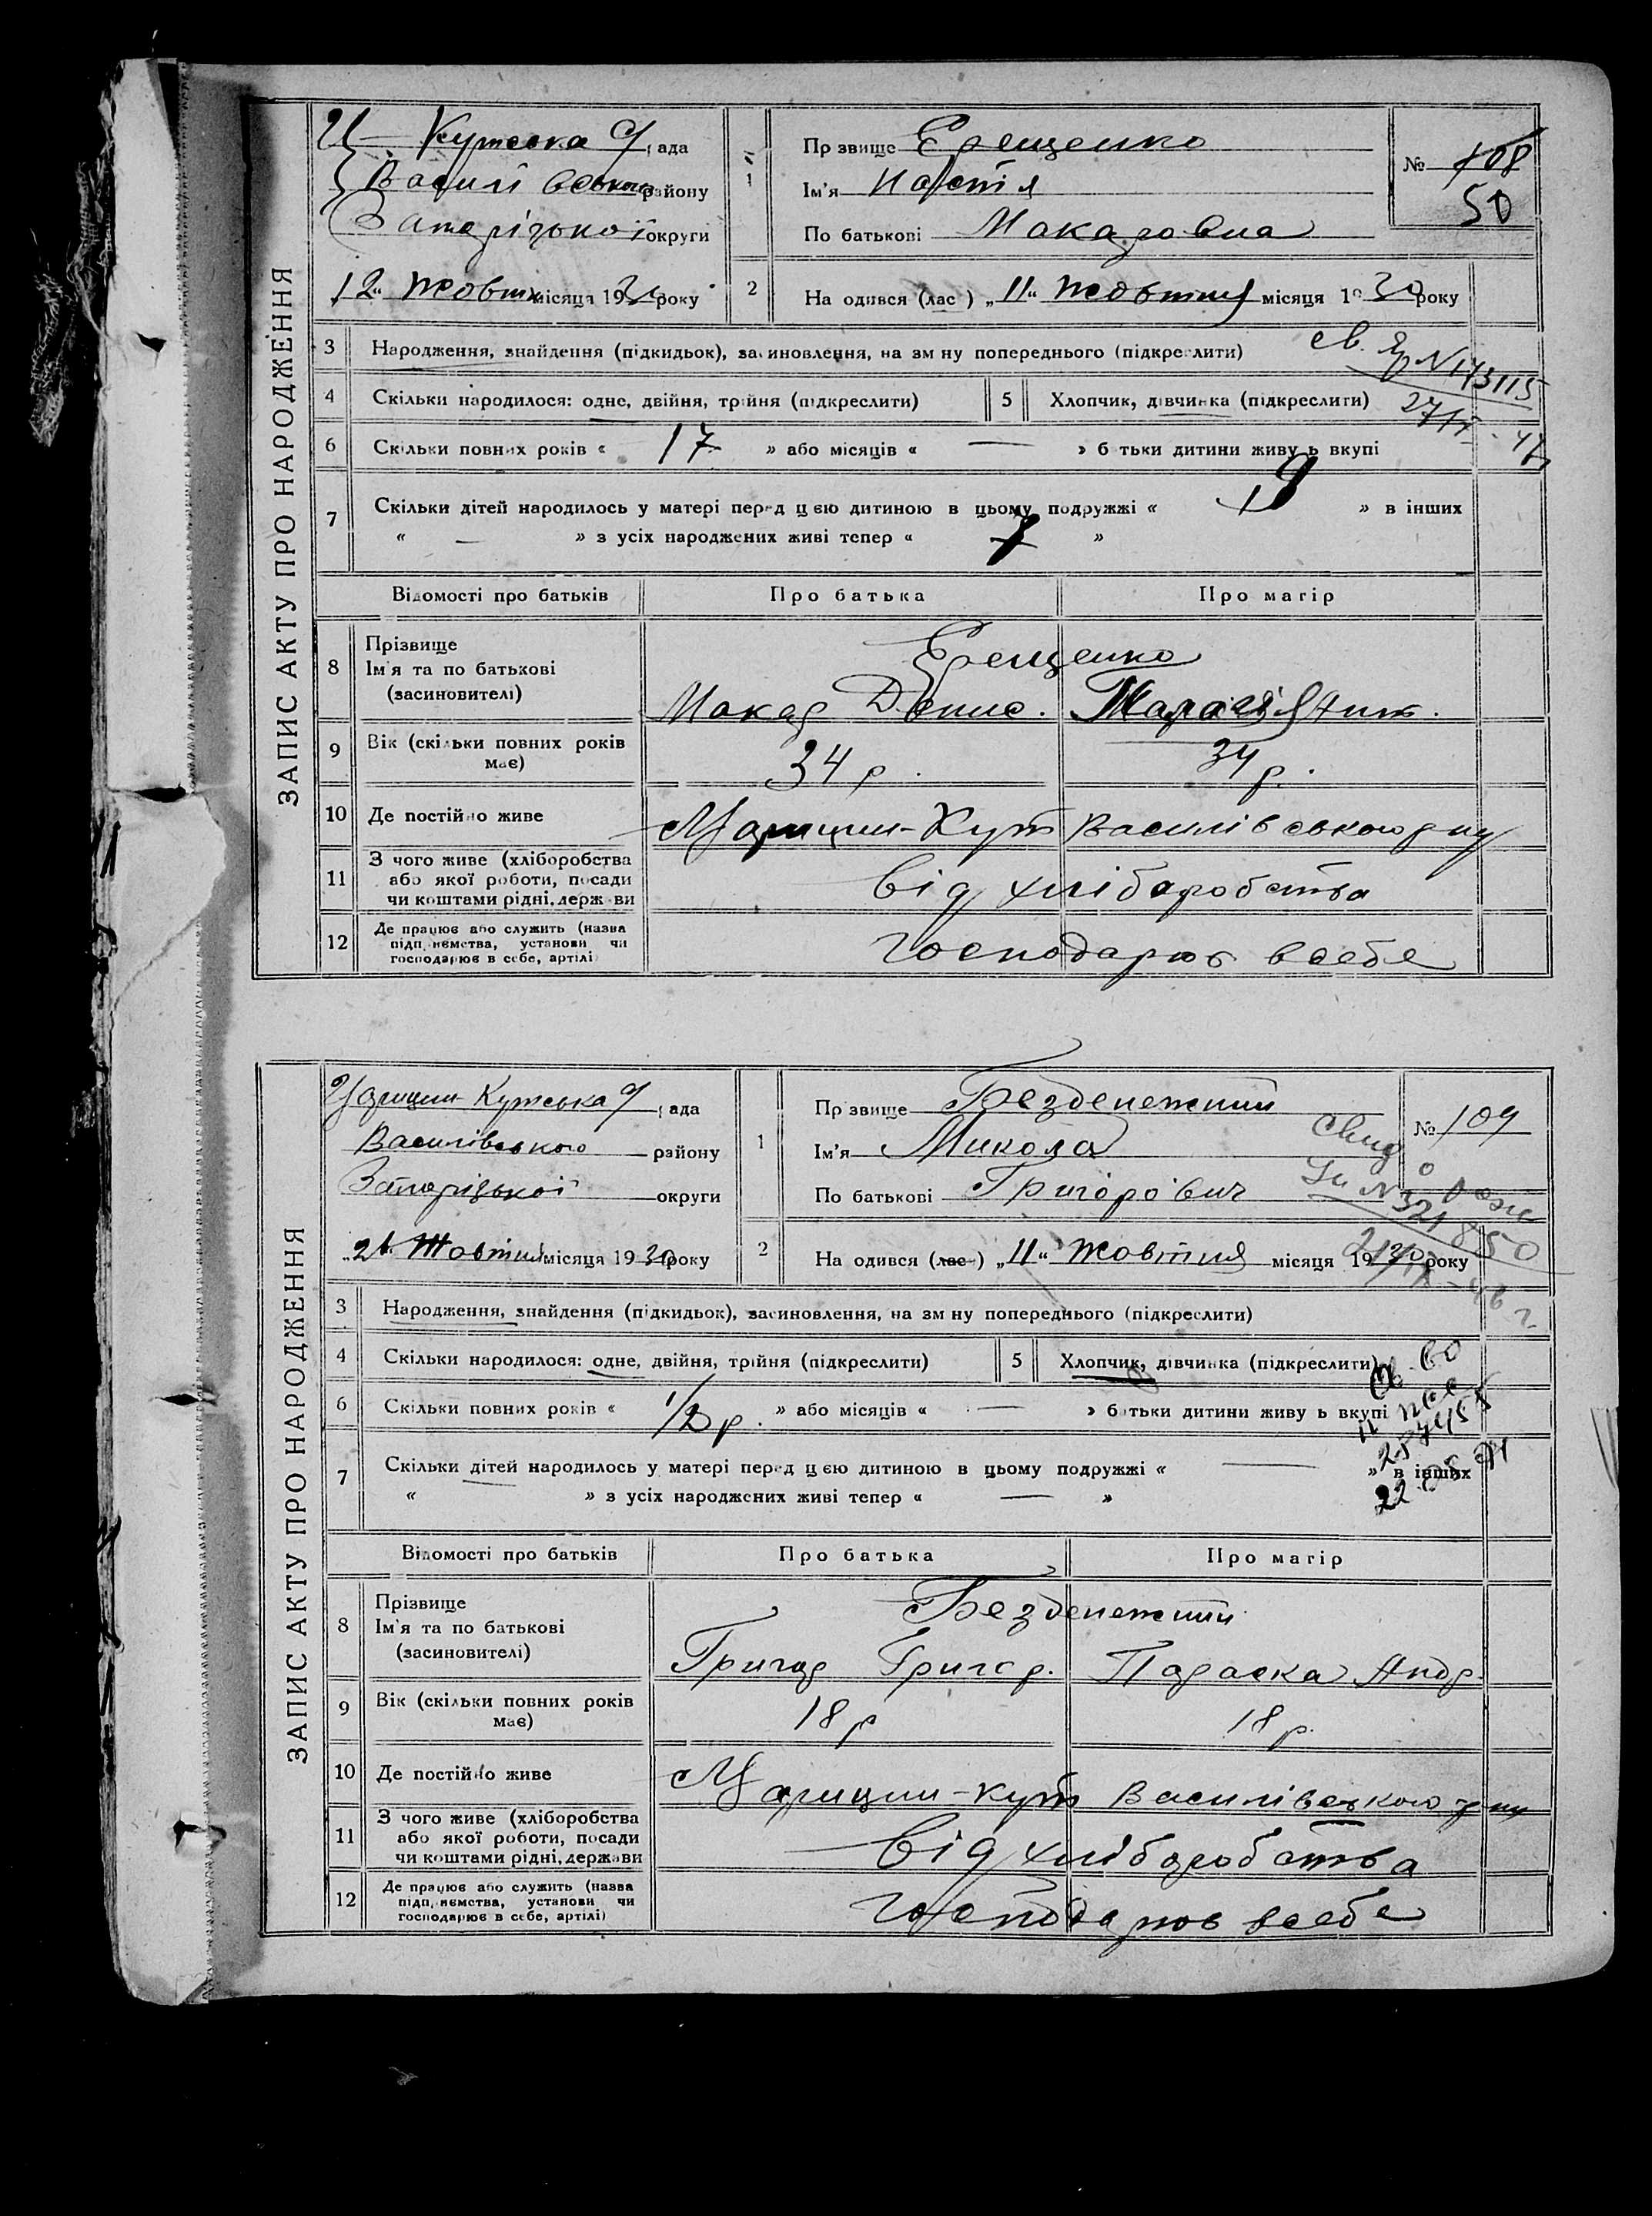 ЗАПИС АКТУ ПРО НАРОДЖЕННЯ
Ц- Кутська С/ рада
Василівського району
Запорізької округи
„12“ Жовтня місяця 1930 року
1
Прізвище Ерещенко
Ім'я Настія
По батькові Макаровна
№ 108
50
2 На одився (лас ) „11“ Жовтня місяця 1930 року
3 Народження, знайдення (підкидьок), засиновлення, на зм ну попереднього (підкреслити)
св. № 173115
4 Скільки народилося: одне, двійня, трійня (підкреслити) 5 Хлопчик, дівчинка (підкреслити)
6 Скільки повних років « 17 » або місяців « — » б тьки дитини живу ь вкупі
7 Скільки дітей народилось у матері перед ц ею дитиною в цьому подружжі « 9 » в інших
« — » з усіх народжених живі тепер « 7 »
Відомості про батьків Про батька Про матір
8 Прізвище
Ім'я та по батькові
(засновителі)
Ерещенко
Макар Денис.
9 Вік (скільки повних років
має)
34 р. 34 р.
10 Де постійно живе Царицин-Кут Василівського р-ну
11 З чого живе (хліборобства
або якої роботи, посади
чи коштами рідні, держ ви
від хліборобства
12 Де працює або служить (назва
підп иємства, установи чи
господарює в себе, артілі)
господарює в себе
ЗАПИС АКТУ ПРО НАРОДЖЕННЯ
Царицин-Кутська С/ рада
Василівського району
Запорізької округи
Жовтня місяця 1930 року
1
Прізвище Безденежний
Ім'я Микола
По батькові Григорович
№ 109
2 На одився (лас ) „11“ Жовтня місяця 1930 року
3 Народження, знайдення (підкидьок), засиновлення, на зм ну попереднього (підкреслити)
4 Скільки народилося: одне, двійня, трійня (підкреслити) 5 Хлопчик, дівчинка (підкреслити)
6 Скільки повних років « 1/2 р. » або місяців « — » б тьки дитини живу ь вкупі
7 Скільки дітей народилось у матері перед ц ею дитиною в цьому подружжі « — » в інших
« » з усіх народжених живі тепер « — »
Відомості про батьків Про батька Про матір
8 Прізвище
Ім'я та по батькові
(засиновителі)
Безденежний
Григор Григор. Параска Андр.
9 Вік (скільки повних років
має)
18 р 18 р.
10 Де постійно живе Царицин-Кут Василівського р-ну
11 З чого живе (хліборобства
або якої роботи, посади
чи коштами рідні, держави
від хліборобства
12 Де працює або служить (назва
підп иємства, установи чи
господарює в себе, артілі)
господарює в себе